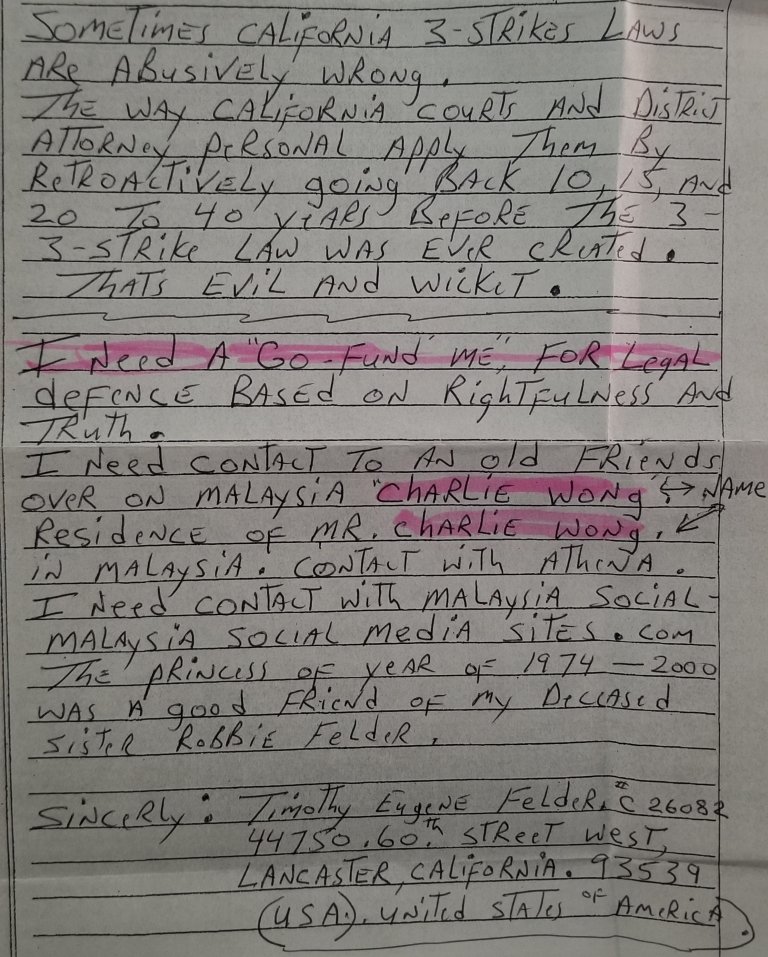 SOMETIMES CALIFORNIA 3-STRIKES LAWS
ARE ABUSIVELY WRONG.
THE WAY CALIFORNIA COURTS AND DISTRICT
ATTORNEY PERSONAL APPLY THEM BY
RETROACTIVELY GOING BACK 10, 15, AND
20 TO 40 YEARS BEFORE THE 3-
3-STRIKE LAW WAS EVER CREATED.
THATS EVIL AND WICKET.
I NEED A "GO-FUND ME", FOR LEGAL
DEFENCE BASED ON RIGHTFULNESS AND
TRUTH.
I NEED CONTACT TO AN OLD FRIENDS
OVER ON MALAYSIA "CHARLIE WONG" ↔ NAME
RESIDENCE OF MR. CHARLIE WONG.
IN MALAYSIA. CONTACT WITH ATHENA.
I NEED CONTACT WITH MALAYSIA SOCIAL-
MALAYSIA SOCIAL MEDIA SITES.COM
THE PRINCESS OF YEAR OF 1974-2000
WAS A GOOD FRIEND OF MY DECEASED
SISTER ROBBIE FELDER.
SINCERLY: TIMOTHY EUGENE FELDER, #C26082
44750.60.th STREET WEST,
LANCASTER, CALIFORNIA. 93539
(USA). UNITED STATES OF AMERICA.